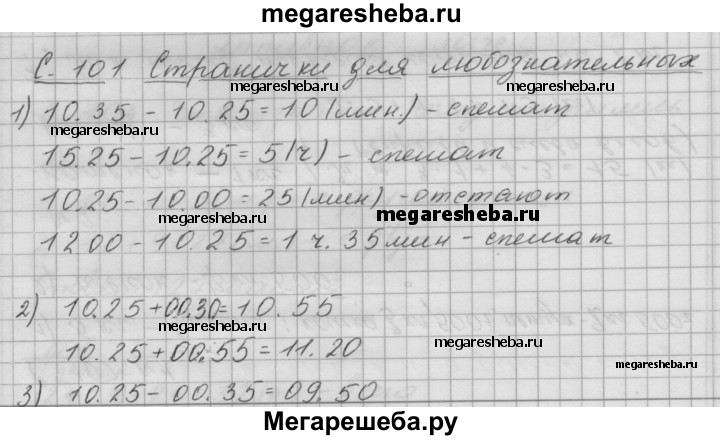 megaresheba.ru
С. 101 Странички для любознательных
megaresheba.ru megaresheba.ru
1) 10.35 - 10.25 = 10 (мин.) - спешат
megaresheba.ru
15.25 - 10.25 = 5 (ч) - спешат
10.25 - 10.00 = 25 (мин) - отстают
megaresheba.ru megaresheba.ru
12 00 - 10.25 = 1 ч. 35 мин - спешат
2) 10.25 + 00.30 = 10.55
megaresheba.ru
10.25 + 00.55 = 11.20
megaresheba.ru megaresheba.ru
3) 10.25 - 00.35 = 09.50
Мегарешеба.ру